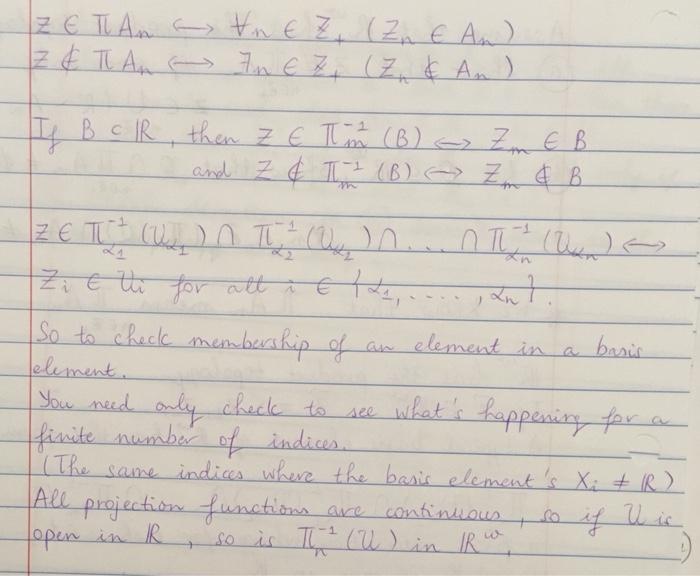 Z ∈ ΠAₙ ⟷ ∀n ∈ Z₊ (Zₙ ∈ Aₙ)
Z ∉ ΠAₙ ⟷ ∃n ∈ Z₊ (Zₙ ∉ Aₙ)
If B ⊂ ℝ, then Z ∈ Πₘ⁻¹(B) ⟷ Zₘ ∈ B
and Z ∉ Πₘ⁻¹(B) ⟷ Zₘ ∉ B
Z ∈ Π_{α₁}⁻¹(U_{α₁}) ∩ Π_{α₂}⁻¹(U_{α₂}) ∩ ... ∩ Π_{αₙ}⁻¹(U_{αₙ}) ⟷
Zᵢ ∈ Uᵢ for all i ∈ {α₁, ....., αₙ}.
So to check membership of an element in a basis
element.
You need only check to see what's happening for a
finite number of indices.
(The same indices where the basis element's Xᵢ ≠ ℝ)
All projection functions are continuous, so if U is
open in ℝ, so is Πₙ⁻¹(U) in ℝ^ω.